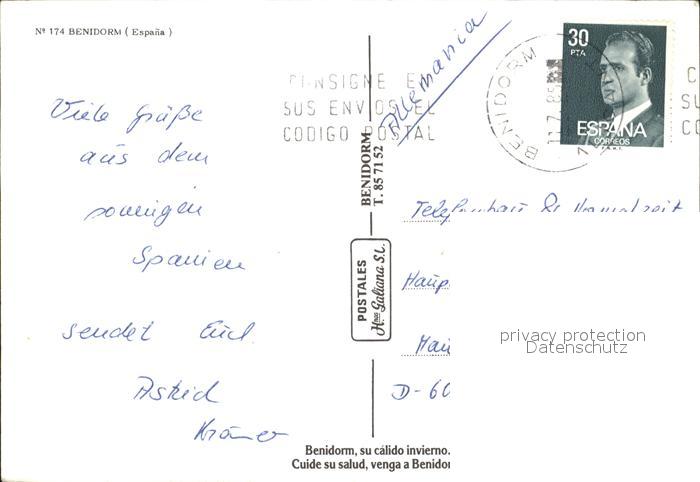 Nº 174 BENIDORM ( España )
Viele Grüße
aus dem
sonnigen
Spanien
sendet Euch
Astrid
Krämer
CONSIGNE EN
SUS ENVIOS EL
CODIGO POSTAL
Allemania
BENIDORM
11.7.85
30
PTA
ESPAÑA
CORREOS
F.N.M.T.
C
SU
CO
BENIDORM
T. 85 71 52
POSTALES
Hnos Galiana S.L.
Haup
Mai
D-60
privacy protection
Datenschutz
Benidorm, su cálido invierno.
Cuide su salud, venga a Benidor